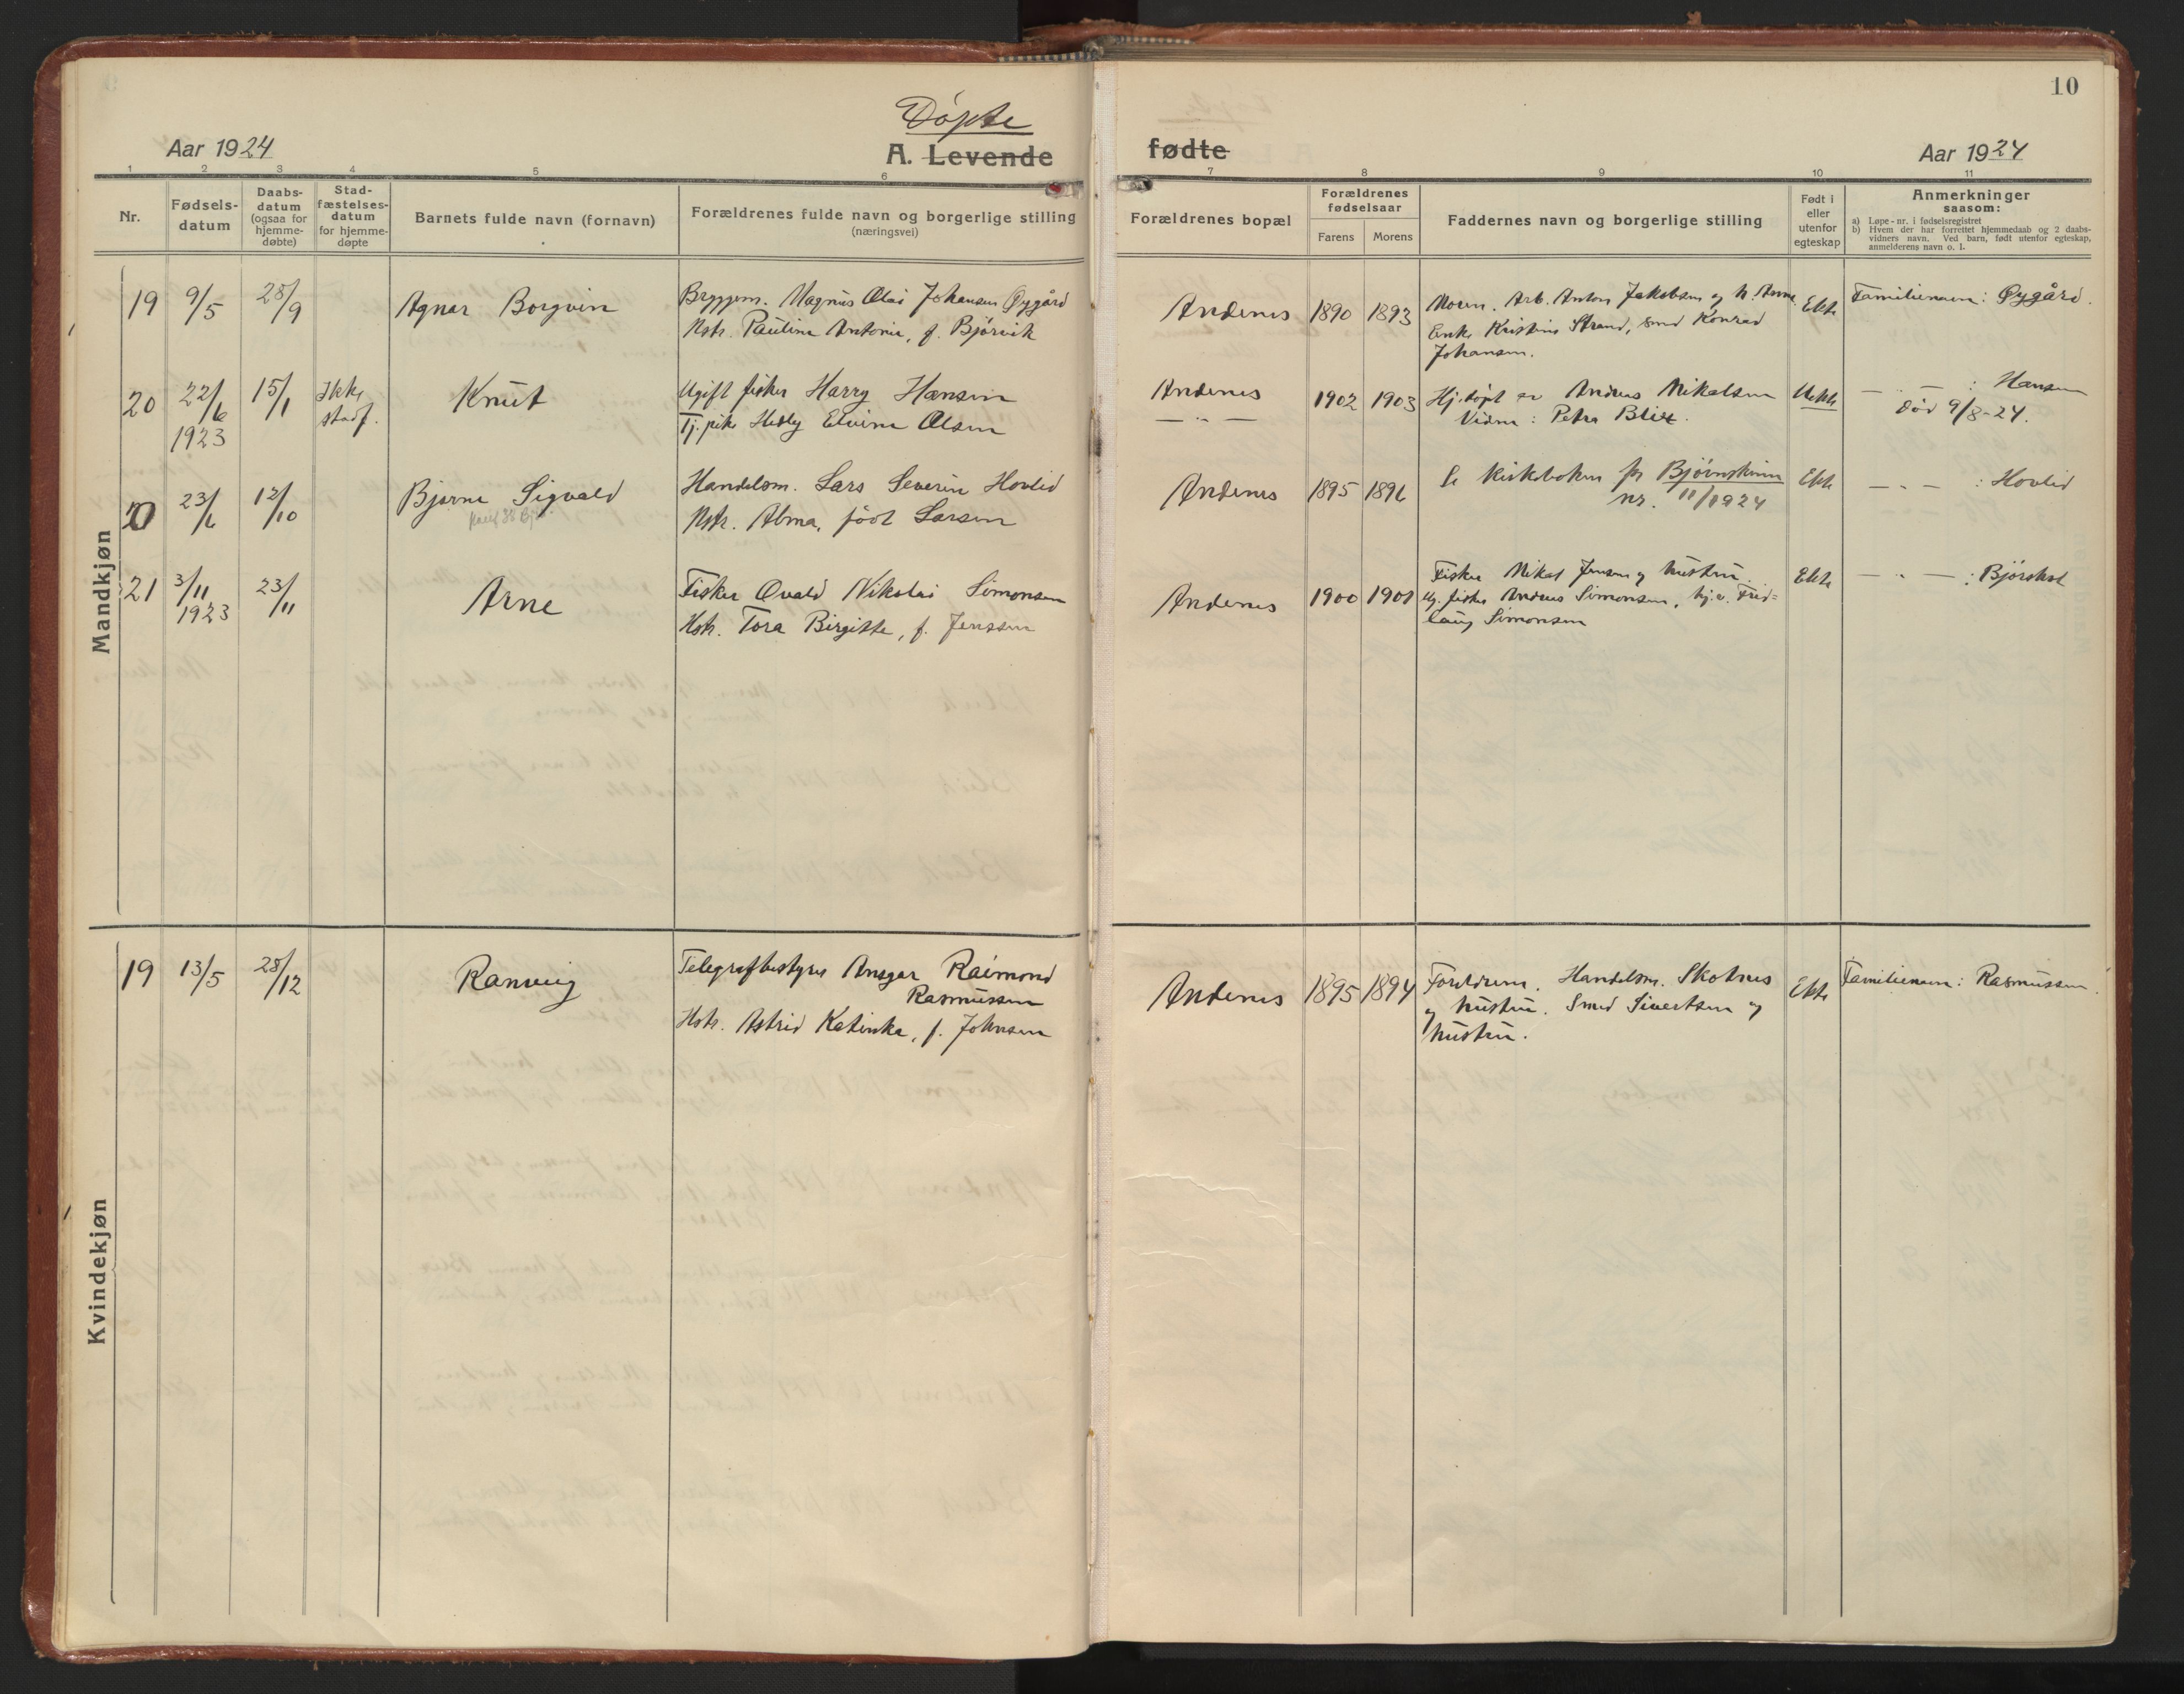 10
Døpte
Aar 1924
A. Levende
fødte
Aar 1924
1 2 3 4 5 6 7 8 9 10 11
Nr.
Fødsels-
datum
Daabs-
datum
(ogsaa for
hjemme-
døbte)
Stad-
fæstelses-
datum
for hjemme-
døpte
Barnets fulde navn (fornavn)
Forældrenes fulde navn og borgerlige stilling
(næringsvei)
Forældrenes bopæl
Forældrenes
fødselsaar
Farens
Morens
Faddernes navn og borgerlige stilling
Født i
eller
utenfor
egteskap
Anmerkninger
saasom:
a) Løpe-nr. i fødselsregistret
b) Hvem der har forrettet hjemmedaab og 2 daabs-
vidners navn. Ved barn, født utenfor egteskap,
anmelderens navn o. l.
Mandkjøn
19
9/5
28/9
Agnar Borgvin
Bryggem. Magnus Olai Johansen Øygård
Hstr. Pauline Antonie, f. Bjørvik
Andenes
1890
1893
Moren. Arb. Anton Jakobsen og h. Anna
Enke Kristine Strand, smed Konrad
Johansen.
Ekte
Familienavn: Øygård.
20
22/6
1923
15/1
Ikke
stadf.
Knut
Ugift fisker Harry Hansen
Tj. pike Elvine Olsen
Andenes
— " —
1902
1903
Hj. døpt av Andreas Nikolsen
Vidne: Petra Blix.
Uekte
— " — : Hansen
Død 9/8-24.
23/6
12/10
Bjarne Sigvald
Handelsm. Lars Severin Hovlid
Hstr. Alma, født Larsen
Andenes
1895
1896
Se kirkeboken for Bjørnskinn
nr. 11/1924
Ekte
— " — : Hovlid
21
3/11
1923
23/11
Arne
Fisker Ovald Nikolai Simonsen
Hstr. Tora Birgitte, f. Jenssen
Andenes
1900
1901
Fisker Nikol Jensen og hustru.
Ug. fisker Andreas Simonsen, Frid=
laug Simonsen
Ekte
— " — :
Kvindekjøn
19
13/5
28/12
Ranveig
Telegrafbestyrer Ansgar Raimond
Rasmussen
Hstr. Astrid Katinka, f. Johnsen
Andenes
1895
1894
Foreldrene. Handelsm. Skotnes
og hustru. Smed Sivertsen og
hustru.
Ekte
Familienavn: Rasmussen.